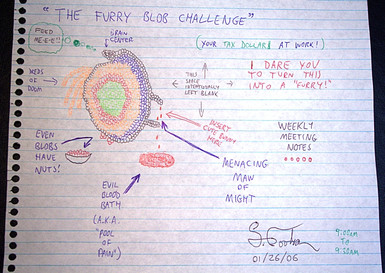 "THE FURRY BLOB CHALLENGE"
POKE
ME-E-E!!
BRAIN
CENTER
(YOUR TAX DOLLARS AT WORK!)
I DARE YOU
TO TURN THIS
INTO A "FURRY!"
THIS
SPACE
INTENTIONALLY
LEFT BLANK
OF
DOOM
INSERT
CUTE
HERE
EVEN
BLOBS
HAVE
NUTS!
WEEKLY
MEETING
NOTES
MENACING
MAW
OF
MIGHT
EVIL
BLOOD
BATH
(A.K.A.
"POOL
OF
PAIN")
01/26/06
9:00AM
TO
9:50AM